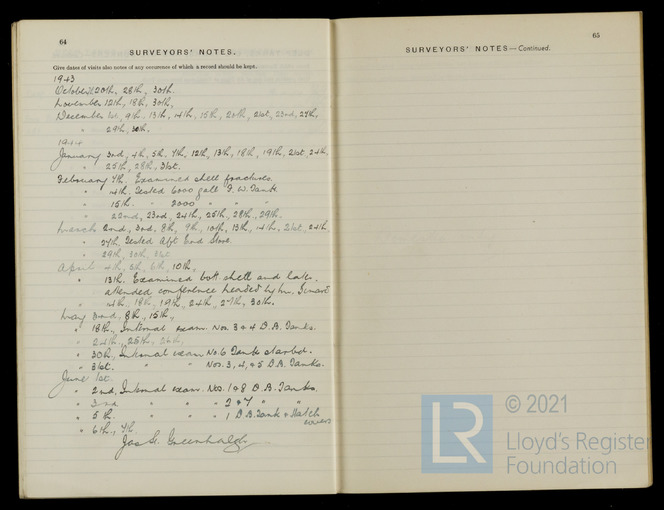 64
SURVEYORS' NOTES.
Give dates of visits also notes of any occurence of which a record should be kept.
1943
October 20th, 28th, 30th.
November 12th, 18th, 30th,
December 1st, 9th, 13th, 14th, 15th, 20th, 21st, 23rd, 27th,
" 29th, 30th.
1944
January 3rd, 4th, 5th, 7th, 12th, 13th, 18th, 19th, 21st, 24th,
" 25th, 28th, 31st.
February 7th. Examined shell fractures.
" 14th. Tested 6000 gall F.W. Tank.
" 15th. " 2000 " " "
" 22nd, 23rd, 24th, 25th, 28th, 29th.
March 2nd, 3rd, 8th, 9th, 10th, 13th, 14th, 21st, 24th
" 27th Tested Aft End Store.
" 29th, 30th, 31st.
April 4th, 5th, 6th, 10th,
" 13th. Examined bott. shell and
attended conference headed by Mr.
" 14th, 18th, 19th, 24th, 27th, 30th.
May 3rd, 8th, 15th,
" 18th, Internal exam. Nos. 3 & 4 D.B. Tanks.
" 24th, 25th, 26th,
" 30th, Internal exam. No. 6 Tank started.
" 31st. " " Nos. 3, 4, & 5 D.B. Tanks.
June 1st.
" 2nd, Internal exam. Nos. 1 & 8 D.B. Tanks.
" 3rd " " " 2 & 7 " "
" 5th. " " " 1 D.B. Tank & Hatch covers
" 6th, 7th.
Jas. Greenhalgh
65
SURVEYORS' NOTES—Continued.
LR
© 2021
Lloyd's Register
Foundation